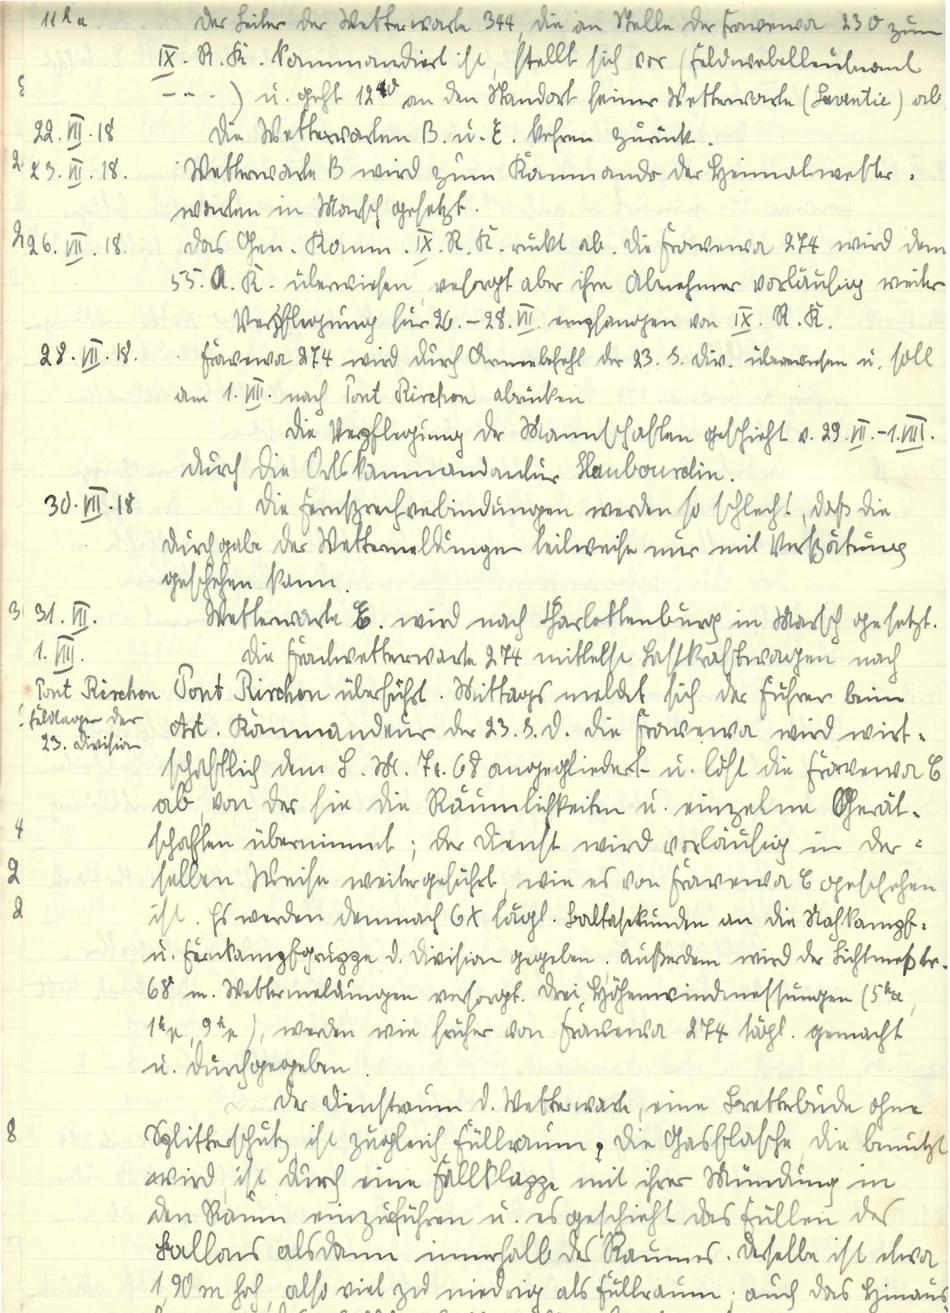 11 h a Der Leiter der Wetterwarte 344, die an Stelle der Frawewa 230 zum
IX. R. K. kommandiert ist, stellt sich vor (Feldwebelleutnant
– – . ) u. geht 12 40 an den Standort seiner Wetterwarte (Laventie) ab
22. VII. 18 Die Wetterwarten B. u. E. kehren zurück.
23. VII. 18. Wetterwarte B wird zum Kommando der Heimatwetter-
warten in Marsch gesetzt.
26. VII. 18. Das Gen. Komm. IX. R. K. rückt ab. Die Frawewa 274 wird dem
55. A. K. überwiesen, versorgt aber ihre Abnehmer vorläufig weiter
Verpflegung für 26.–28. VII. empfangen von IX. R. K.
28. VII. 18. Frawewa 274 wird durch Armeebefehl der 23. S. Div. überwiesen u. soll
am 1. VIII. nach Pont Rirchon abrücken
Die Verpflegung der Mannschaften geschieht v. 29. VII.–1. VIII.
durch die Ortskommandantur Haubourdin.
30. VII. 18 Die Fernsprechverbindungen werden so schlecht, daß die
Durchgabe der Wettermeldungen teilweise nur mit Verspätung
geschehen kann.
3 31. VII. Wetterwarte E. wird nach Charlottenburg in Marsch gesetzt.
1. VIII. Die Fradwetterwarte 274 mittelst Lastkraftwagen nach
Pont Rirchon Pont Rirchon überführt. Mittags meldet sich der Führer beim
Feldlager der
23. Division Art. Kommandeur der 23. S. D. Die Frawewa wird wirt-
schaftlich dem L. M. Tr. 68 angegliedert u. löst die Frawewa 6
ab, von der sie die Räumlichkeiten u. einzelne Gerät-
4 schaften übernimmt; der Dienst wird vorläufig in der-
2 selben Weise weitergeführt, wie es von Frawewa 6 geschehen
2 ist. Es werden demnach 6x tägl. Baltasekunden an die Nahkampf-
u. Fernkampfgruppe d. Division gegeben. Außerdem wird der Lichtmeßtr.
68 m. Wettermeldungen versorgt. Drei Höhenwindmessungen (5 h a,
1 h p, 9 h p), werden wie früher von Frawewa 274 tägl. gemacht
u. durchgegeben.
Der Dienstraum d. Wetterwarte, eine Bretterbude ohne
8 Splitterschutz, ist zugleich Füllraum; die Gasflasche, die benutzt
wird, ist durch eine Fallklappe mit ihrer Mündung in
den Raum einzuführen u. es geschieht das Füllen des
Ballons alsdann innerhalb des Raumes. Derselbe ist etwa
1,90 m hoch, also viel zu niedrig als Füllraum; auch das Hinaus